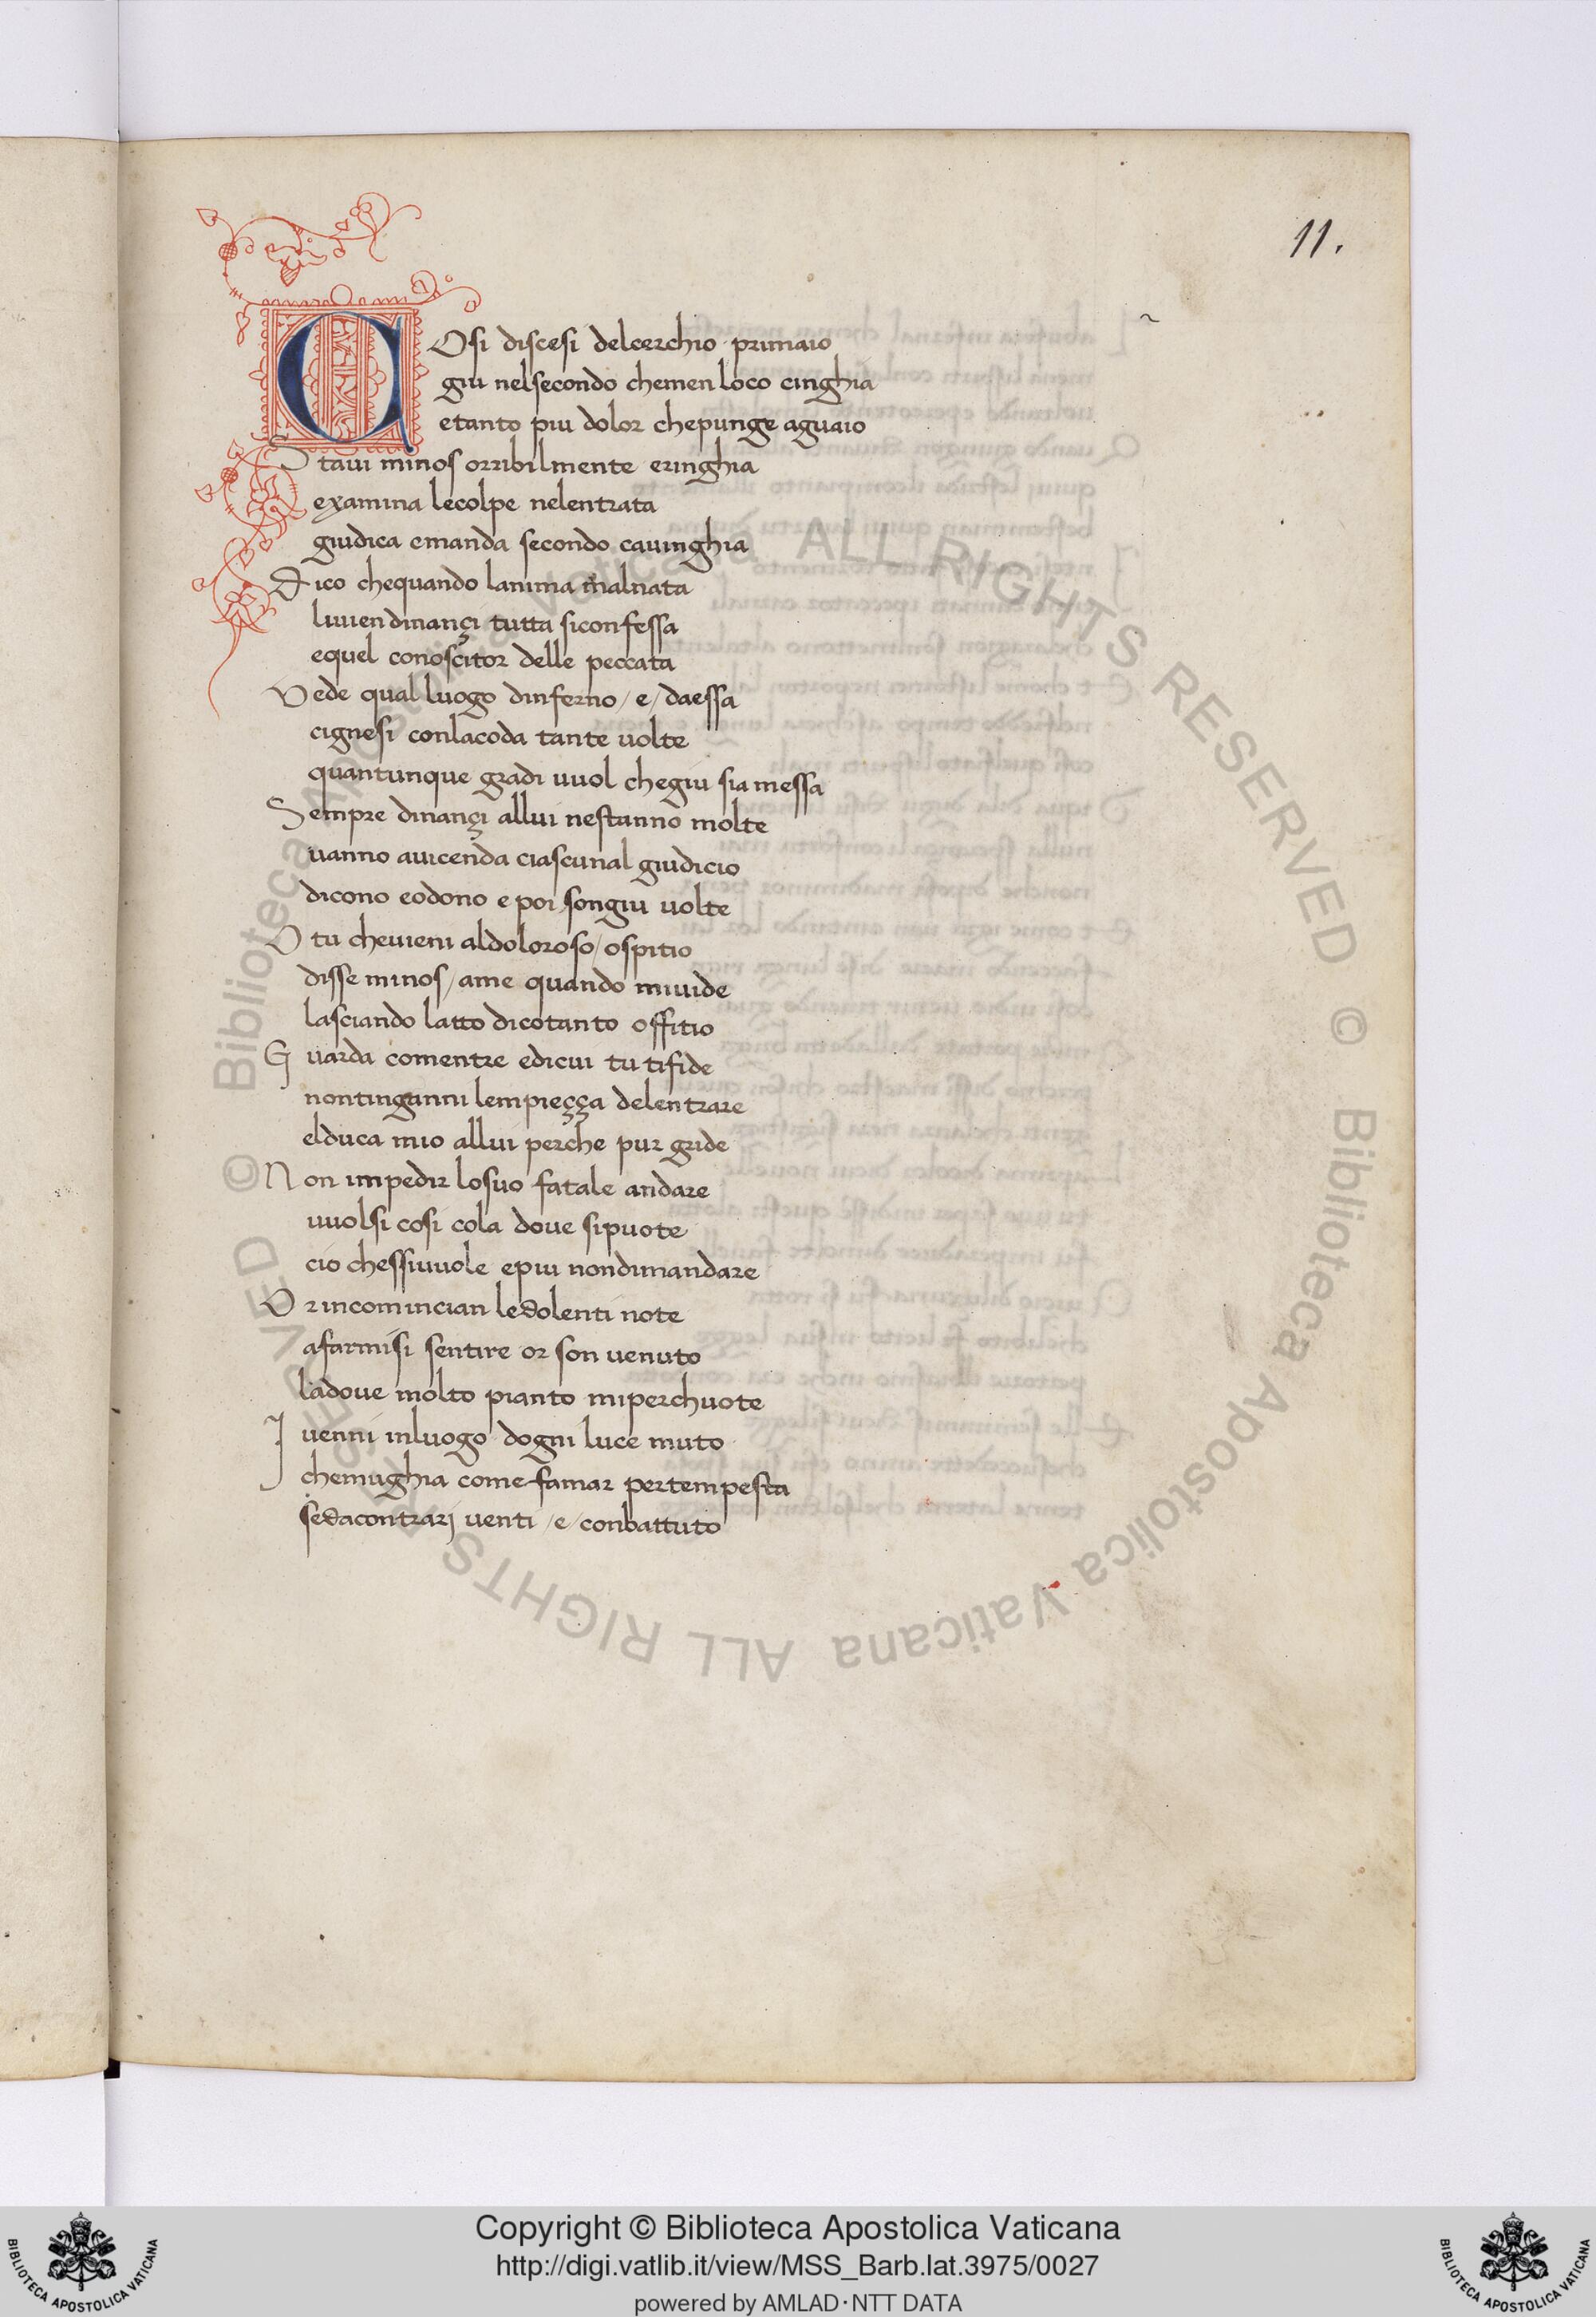 11.
COsi discesi delcerchio primaio
giu nelsecondo chemen loco cinghia
etanto piu dolor chepunge aguaio
Stavi minos orribilmente eringhia
examina lecolpe nelentrata
giudica emanda secondo cauinghia
Dico chequando lanima malnata
liuiendinançi tutta siconfessa
equel conoscitor delle peccata
Vede qual luogo dinferno / e / daessa
cignesi conlacoda tante uolte
quantunque gradi uuol chegiu sia messa
Sempre dinançi allui nestanno molte
uanno auicenda ciascunal giudicio
dicono eodono e poi songiu uolte
O tu cheuieni aldoloroso / ospitio
disse minos / ame quando miuide
lasciando latto dicotanto offitio
Guarda comentre edicui tu tifide
nontinganni lempieçça delentrare
elduca mio allui perche pur gride
Non impedir losuo fatale andare
uuolsi cosi cola doue sipuote
cio chessiuuole epiu nondimandare
Or incomincian ledolenti note
afarmisi sentire or son uenuto
ladoue molto pianto miperchuote
I uenni inluogo dogni luce muto
chemughia come famar pertempesta
sedacontrarj uenti / e / conbattuto
© Biblioteca Apostolica Vaticana ALL RIGHTS RESERVED © Biblioteca Apostolica Vaticana ALL RIGHTS RESERVED
Copyright © Biblioteca Apostolica Vaticana
http://digi.vatlib.it/view/MSS_Barb.lat.3975/0027
powered by AMLAD·NTT DATA
BIBLIOTECA APOSTOLICA VATICANA
BIBLIOTECA APOSTOLICA VATICANA